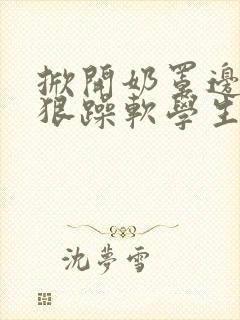 掀開奶罩邊
狠躁軟學生
沈夢雪